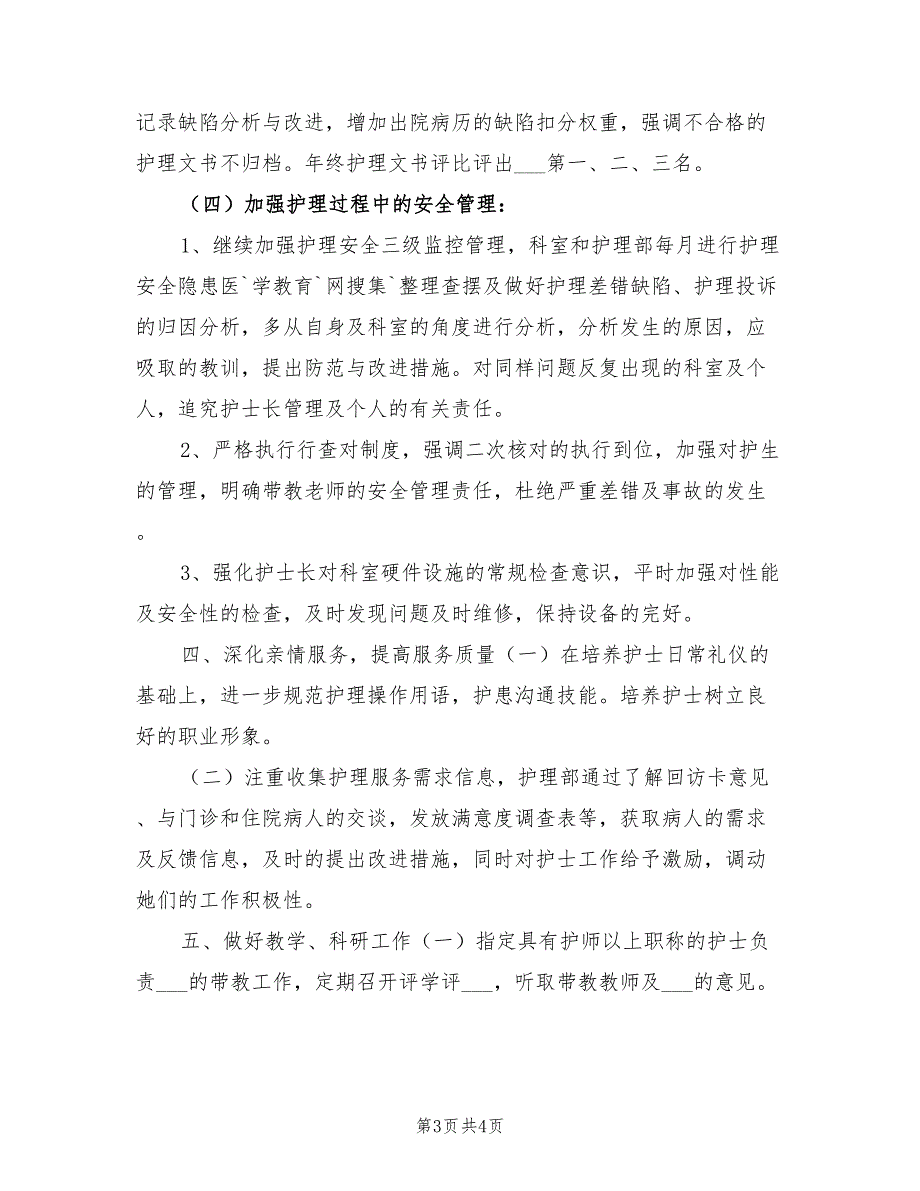 记录缺陷分析与改进，增加出院病历的缺陷扣分权重，强调不合格的
护理文书不归档。年终护理文书评比评出___第一、二、三名。
（四）加强护理过程中的安全管理：
1、继续加强护理安全三级监控管理，科室和护理部每月进行护理
安全隐患医`学教育`网搜集`整理查摆及做好护理差错缺陷、护理投诉
的归因分析，多从自身及科室的角度进行分析，分析发生的原因，应
吸取的教训，提出防范与改进措施。对同样问题反复出现的科室及个
人，追究护士长管理及个人的有关责任。
2、严格执行行查对制度，强调二次核对的执行到位，加强对护生
的管理，明确带教老师的安全管理责任，杜绝严重差错及事故的发生
。
3、强化护士长对科室硬件设施的常规检查意识，平时加强对性能
及安全性的检查，及时发现问题及时维修，保持设备的完好。
四、深化亲情服务，提高服务质量（一）在培养护士日常礼仪的
基础上，进一步规范护理操作用语，护患沟通技能。培养护士树立良
好的职业形象。
（二）注重收集护理服务需求信息，护理部通过了解回访卡意见
、与门诊和住院病人的交谈，发放满意度调查表等，获取病人的需求
及反馈信息，及时的提出改进措施，同时对护士工作给予激励，调动
她们的工作积极性。
五、做好教学、科研工作（一）指定具有护师以上职称的护士负
责___的带教工作，定期召开评学评___，听取带教教师及___的意见。
第3页共4页